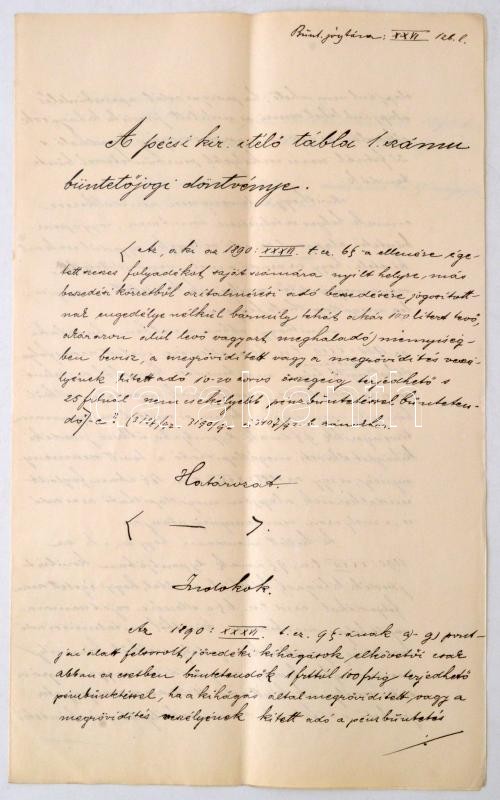 Bünt. jogtára: XXVI 126. l.
A pécsi kir. itélő tábla 1. számu
büntetőjogi döntvénye.
Az, a ki az 1890: XXXVI. t. cz. 6§-a ellenére ége-
tett szeszes folyadékot saját számára nyilt helyre, más
beszedési körzetből az italmérési adó beszedésére jogositott-
nak engedélye nélkül bármily tehát akár 100 litert tevő,
akár azon alul levő vagy azt meghaladó mennyiség-
ben bevisz, a megröviditett vagy a megrövidités veszé-
lyének kitett adó 10-20 szoros összegéig terjedhető s
25 frtnál nem csekélyebb pénzbüntetéssel bünteten-
dő-e?
Határozat.
< — >.
Indokok.
Az 1890: XXXVI. t. cz. 9§-ának a)-g) pont-
jai alatt felsorolt jövedéki kihágások elkövetői csak
abban az esetben büntetendők 1 frttól 100 frtig terjedhető
pénzbüntetéssel, ha a kihágás által megröviditett, vagy a
megrövidités veszélyének kitett adó a pénzbüntetés